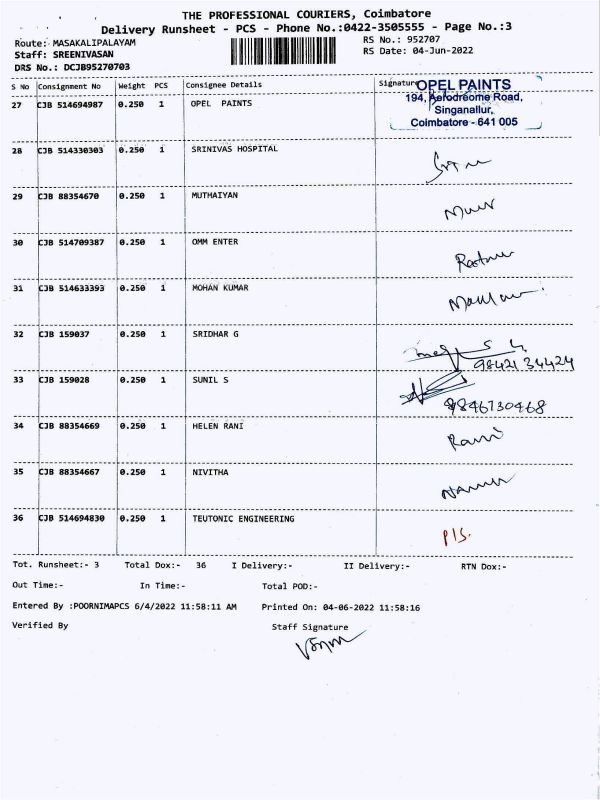 THE PROFESSIONAL COURIERS, Coimbatore
Delivery Runsheet - PCS - Phone No.:0422-3505555 - Page No.:3
Route: MASAKALIPALAYAM RS No.: 952707
Staff: SREENIVASAN RS Date: 04-Jun-2022
DRS No.: DCJB95270703
S No Consignment No Weight PCS Consignee Details Signature
OPEL PAINTS
194, Aerodreome Road,
Singanallur,
Coimbatore - 641 005
27 CJB 514694987 0.250 1 OPEL PAINTS
28 CJB 514330303 0.250 1 SRINIVAS HOSPITAL
29 CJB 88354670 0.250 1 MUTHAIYAN
30 CJB 514709387 0.250 1 OMM ENTER
31 CJB 514633393 0.250 1 MOHAN KUMAR
32 CJB 159037 0.250 1 SRIDHAR G
9842134424
33 CJB 159028 0.250 1 SUNIL S
9846730468
34 CJB 88354669 0.250 1 HELEN RANI Rani
35 CJB 88354667 0.250 1 NIVITHA
36 CJB 514694830 0.250 1 TEUTONIC ENGINEERING
Tot. Runsheet:- 3 Total Dox:- 36 I Delivery:- II Delivery:- RTN Dox:-
Out Time:- In Time:- Total POD:-
Entered By :POORNIMAPCS 6/4/2022 11:58:11 AM Printed On: 04-06-2022 11:58:16
Verified By Staff Signature